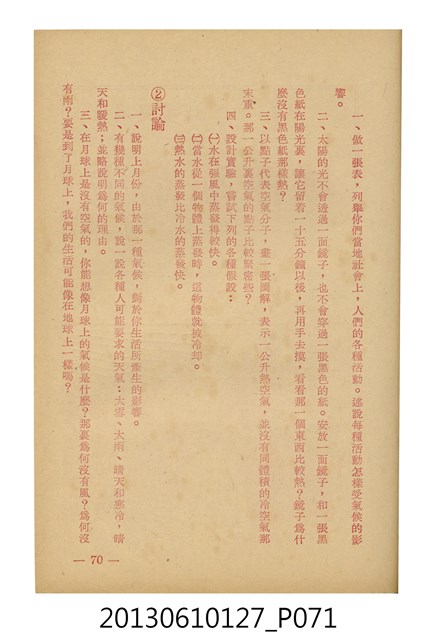 一、做一張表，列舉你們當地社會上，人們的各種活動。述說每種活動怎樣受氣候的影
響。
二、太陽的光不會透過一面鏡子，也不會穿過一張黑色的紙。安放一面鏡子，和一張黑
色紙在陽光裏，讓它留着一十五分鐘以後，再用手去摸，看看那一個東西比較熱？鏡子爲什
麼沒有黑色紙那樣熱？
三、以點子代表空氣分子，畫一張圖解，表示一公升熱空氣，並沒有同體積的冷空氣那
末重。那一公升裏空氣的點子比較緊密些？
四、設計實驗，嘗試下列的各種假設：
㈠水在强風中蒸發得較快。
㈡當水從一個物體上蒸發時，這物體就被冷却。
㈢熱水的蒸發比冷水的蒸發快。
②討論
一、說明上月份，由於那一種氣候，對於你生活所產生的影響。
二、有幾種不同的氣候，說一說各種人可能要求的天氣：大雪、大雨、晴天和寒冷，晴
天和暖熱；並略說明爲何的理由。
三、在月球上是沒有空氣的，你能想像月球上的氣候是什麼？那裏爲何沒有風？爲何沒
有雨？要是到了月球上，我們的生活可能像在地球上一樣嗎？
— 70 —
20130610127_P071